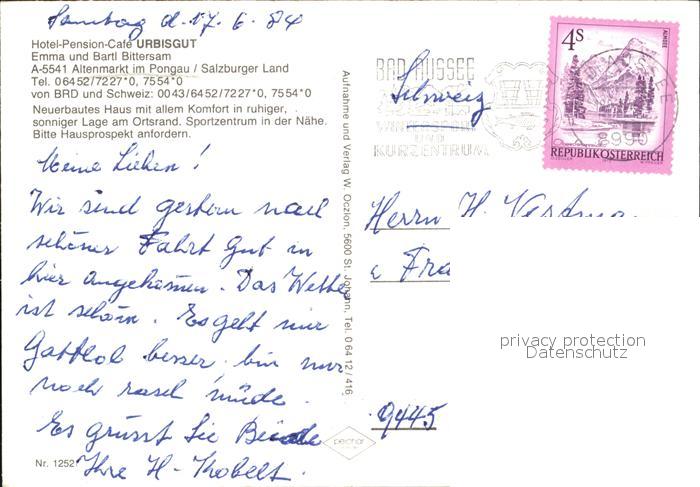 Samstag d. 17. 6. 84
Hotel-Pension-Café URBISGUT
Emma und Bartl Bittersam
A-5541 Altenmarkt im Pongau / Salzburger Land
Tel. 06452/7227*0, 7554*0
von BRD und Schweiz: 0043/6452/7227*0, 7554*0
Neuerbautes Haus mit allem Komfort in ruhiger,
sonniger Lage am Ortsrand. Sportzentrum in der Nähe.
Bitte Hausprospekt anfordern.
Meine Lieben!
Wir sind gestern nach
schöner Fahrt gut in
hier angekommen. Das Wetter
ist schön. Es geht mir
Gottlob besser, bin nur
noch rasch müde.
Es grüsst Sie Beide
Ihre H. Kobelt.
Nr. 1252
Aufnahme und Verlag W. Oczlon, 5600 St. Johann, Tel. 06412/416
peichar
BAD AUSSEE
UND
KURZENTRUM
Schweiz
4S
ALMSEE
8990
REPUBLIK ÖSTERREICH
Herrn H.
& Fra
9445
privacy protection
Datenschutz